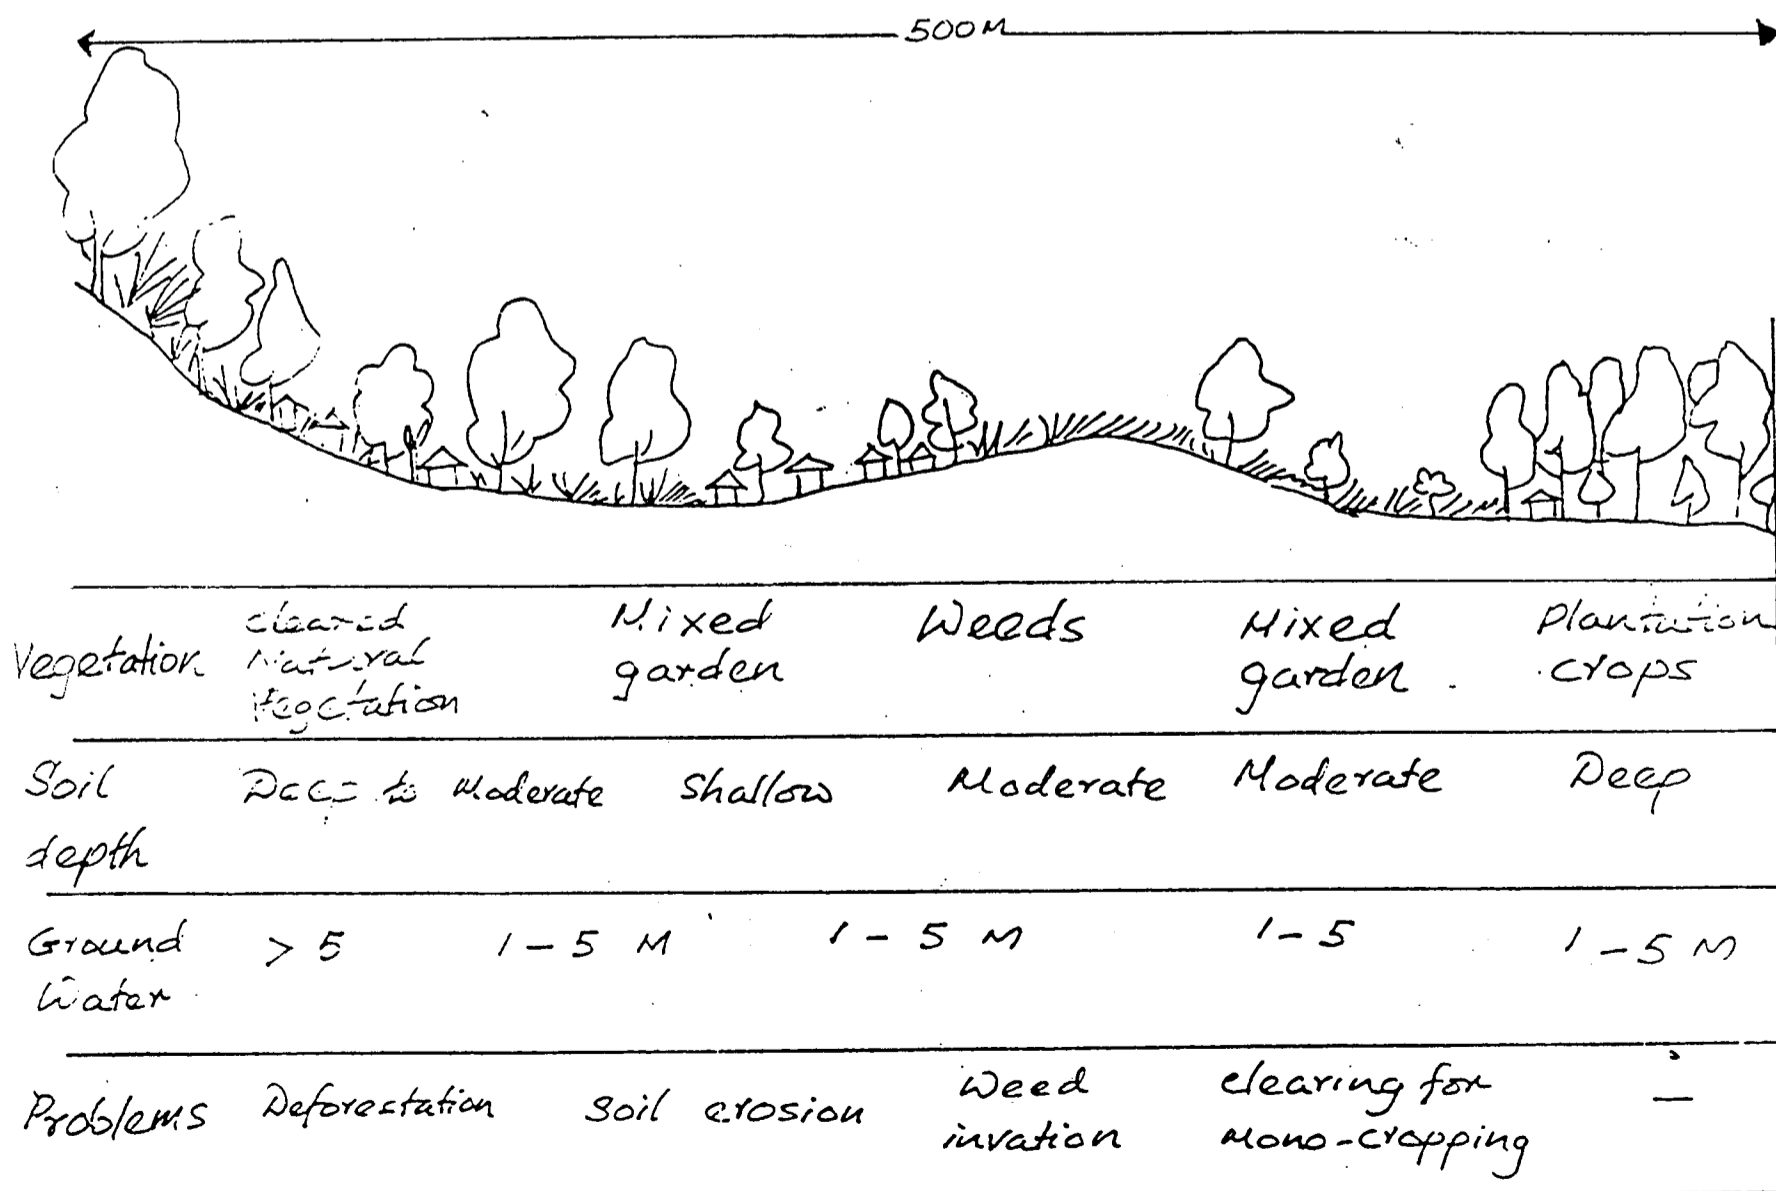 500M
Vegetation cleared Natural Vegetation Mixed garden Weeds Mixed garden Plantation crops
Soil depth Deep to Moderate Shallow Moderate Moderate Deep
Ground Water > 5 1-5 M 1-5 M 1-5 1-5 M
Problems Deforestation Soil erosion Weed invation clearing for Mono-cropping —